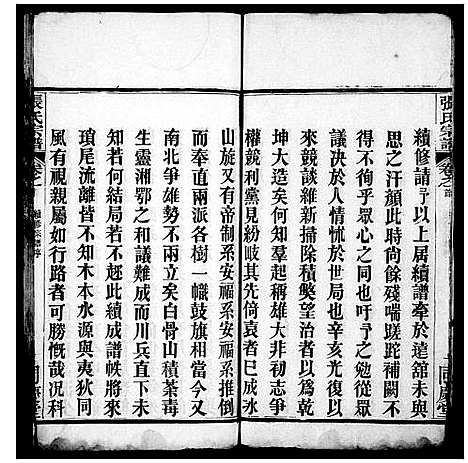 張氏宗譜
卷之一
續修請予以上居續譜牽於遠館未與
思之汗顏此時尚餘殘喘蹉跎補闕不
得不徇乎眾心之同也吁予之勉從眾
議決於人情怵於世局也辛亥光復以
來競談維新掃除積弊望治者以為乾
坤大造矣何知羣起稱雄大非初志爭
權競利黨見紛岐其先倚袁者已成冰
山旋又有帝制系安福系安福系推倒
而奉直兩派各樹一幟鼓旗相當今又
南北爭雄勢不兩立矣白骨山積荼毒
生靈湘鄂之和議難成而川兵直下未
知若何結局若不趂此續成譜帙將來
瑣尾流離皆不知木本水源與夷狄同
風有視親屬如行路者可勝慨哉况科
張氏宗譜
卷之一
續修宗譜序
同慶堂